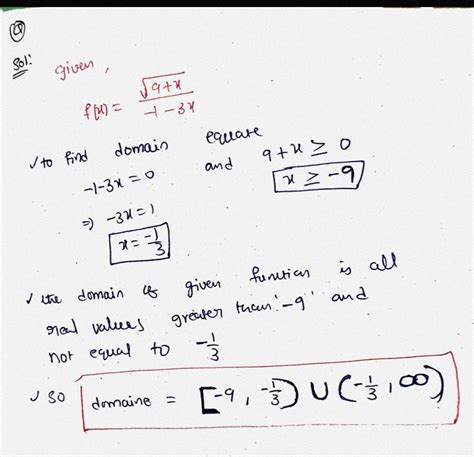 Sol:
given,
f(x) = √(9+x) / (-1-3x)
✓ to find domain equate
-1-3x = 0 and 9+x ≥ 0
⇒ -3x = 1 x ≥ -9
x = -1/3
✓ the domain of given function is all
real values greater than "-9" and
not equal to -1/3
✓ so domaine = [-9, -1/3) ∪ (-1/3, ∞)